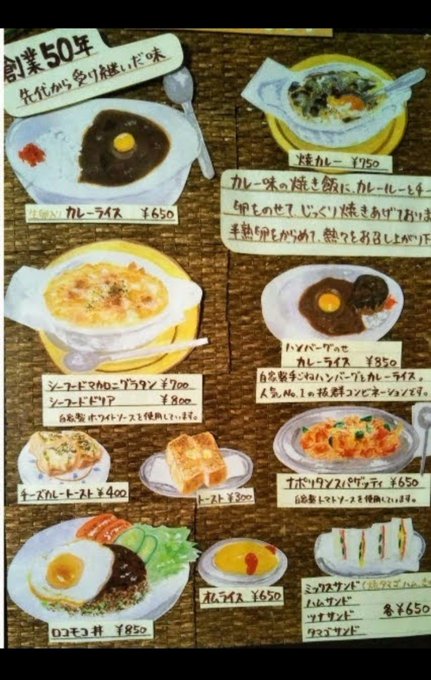 創業50年
先代から受り継いだ味
生卵入り カレーライス ¥650
焼カレー ¥750
カレー味の焼き飯に、カレールーとチー
卵をのせて、じっくり焼きあげておりま
半熟卵をからめて、熱々をお召し上がり下
シーフードマカロニグラタン ¥700
シーフードドリア ¥800
自家製ホワイトソースを使用しています。
ハンバーグのせ
カレーライス ¥850
自家製手ごねハンバーグとカレーライス。
人気No.1の抜群コンビネーションです。
チーズカレートースト ¥400
トースト ¥300
ナポリタンスパゲッティ ¥650
自家製トマトソースを使用しています。
ロコモコ丼 ¥850
オムライス ¥650
ミックスサンド
ハムサンド
ツナサンド 各¥650
タマゴサンド